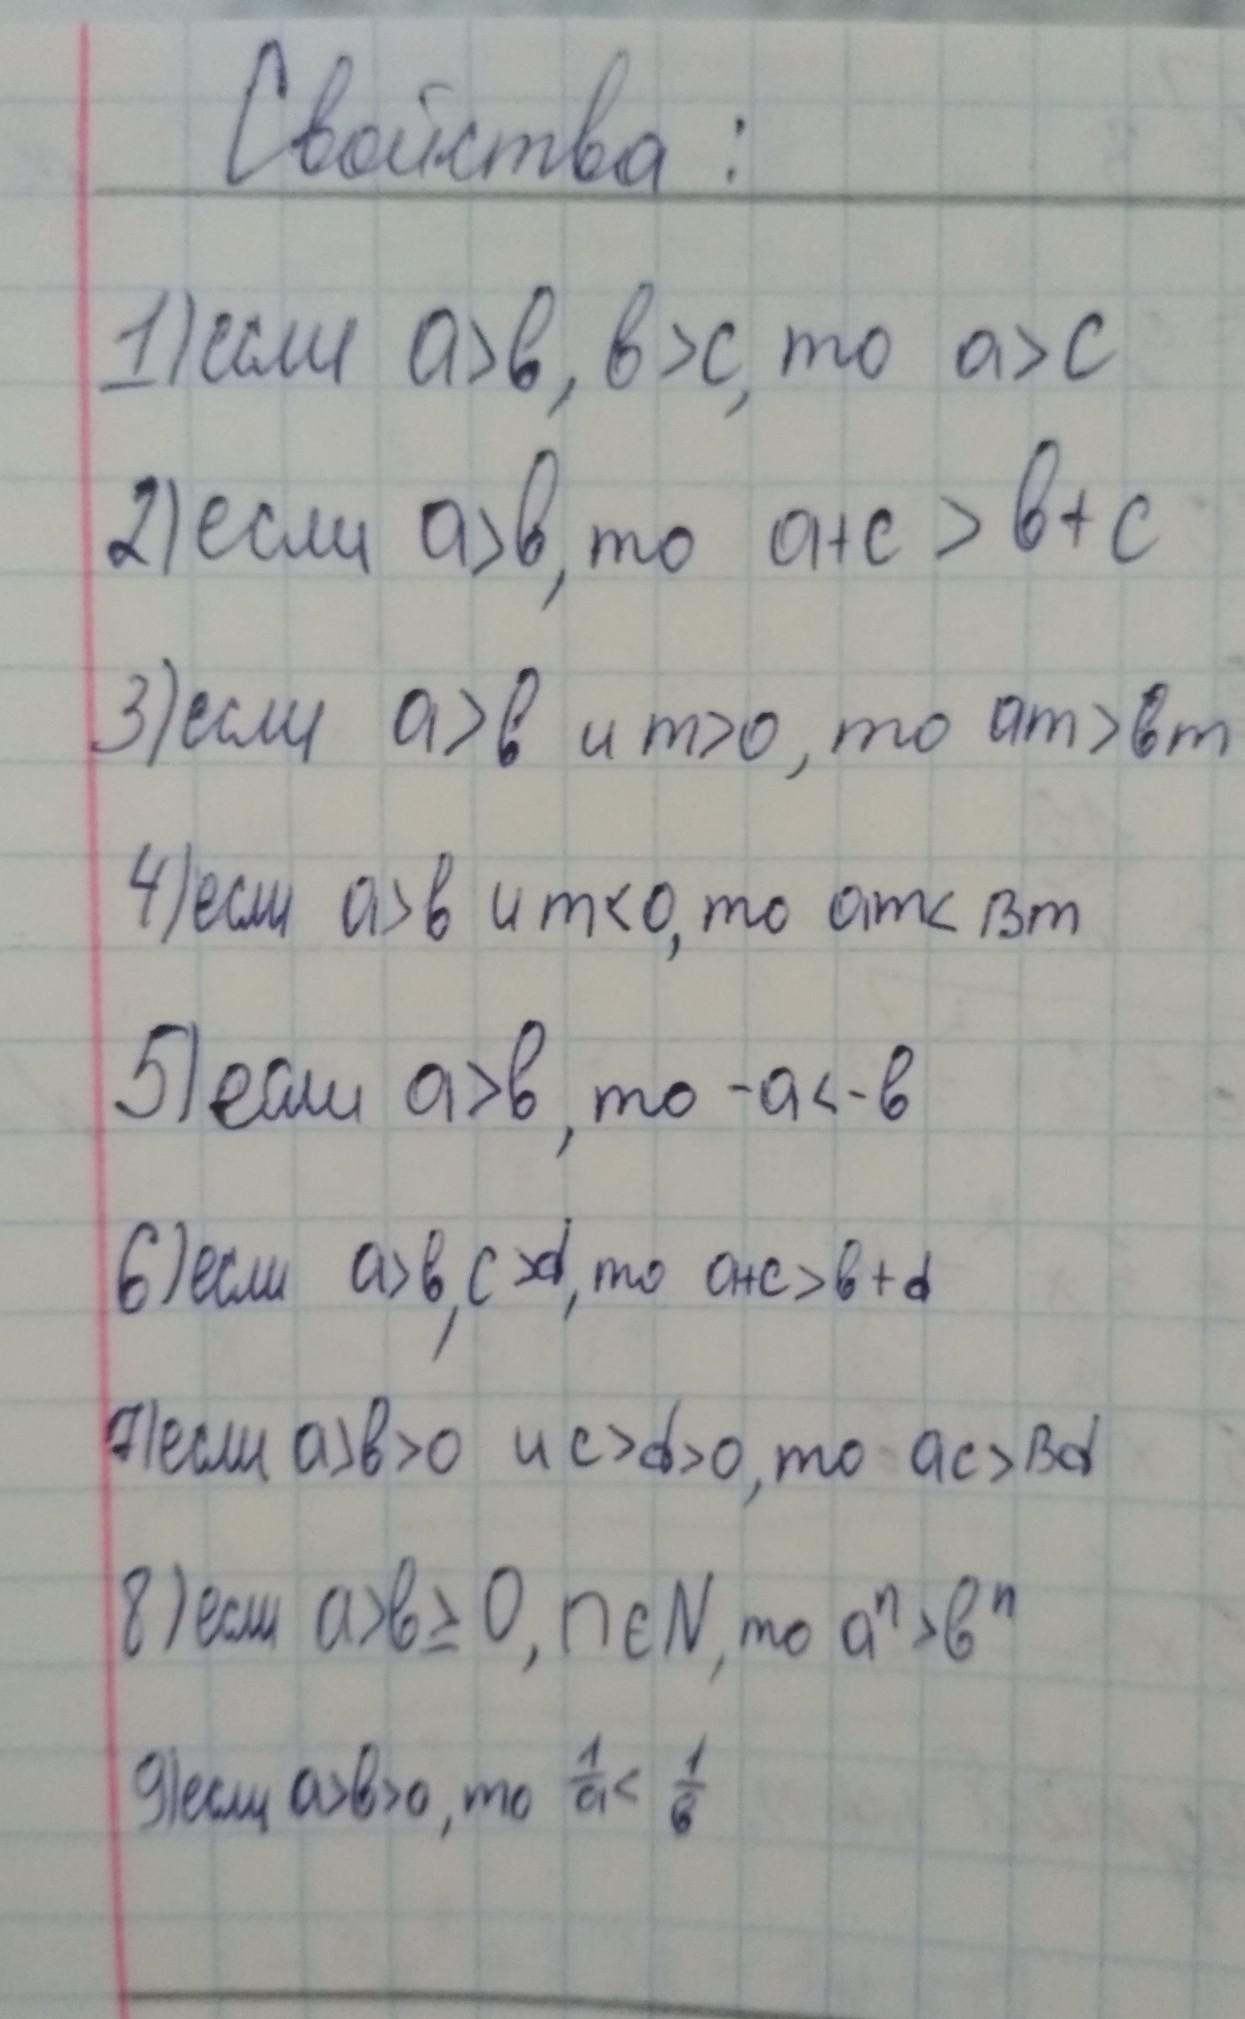 Свойства:
1) если a>b, b>c, то a>c
2) если a>b, то a+c > b+c
3) если a>b и m>0, то am>bm
4) если a>b и m<0, то am< Bm
5) если a>b, то -a<-b
6) если a>b, c>d, то a+c>b+d
7) если a>b>0 и c>d>0, то ac>Bd
8) если a>b≥0, n∈N, то aⁿ>bⁿ
9) если a>b>0, то 1/a < 1/b